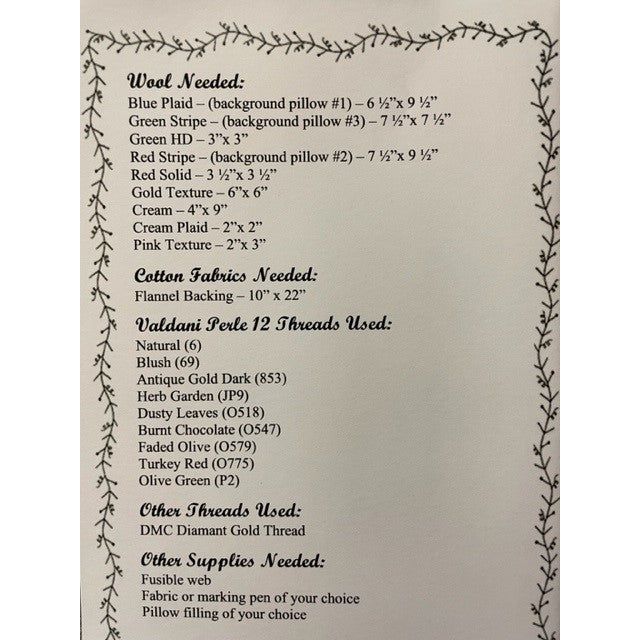 Wool Needed:
Blue Plaid – (background pillow #1) – 6 ½”x 9 ½”
Green Stripe – (background pillow #3) – 7 ½”x 7 ½”
Green HD – 3”x 3”
Red Stripe – (background pillow #2) – 7 ½”x 9 ½”
Red Solid – 3 ½”x 3 ½”
Gold Texture – 6”x 6”
Cream – 4”x 9”
Cream Plaid – 2”x 2”
Pink Texture – 2”x 3”
Cotton Fabrics Needed:
Flannel Backing – 10” x 22”
Valdani Perle 12 Threads Used:
Natural (6)
Blush (69)
Antique Gold Dark (853)
Herb Garden (JP9)
Dusty Leaves (O518)
Burnt Chocolate (O547)
Faded Olive (O579)
Turkey Red (O775)
Olive Green (P2)
Other Threads Used:
DMC Diamant Gold Thread
Other Supplies Needed:
Fusible web
Fabric or marking pen of your choice
Pillow filling of your choice